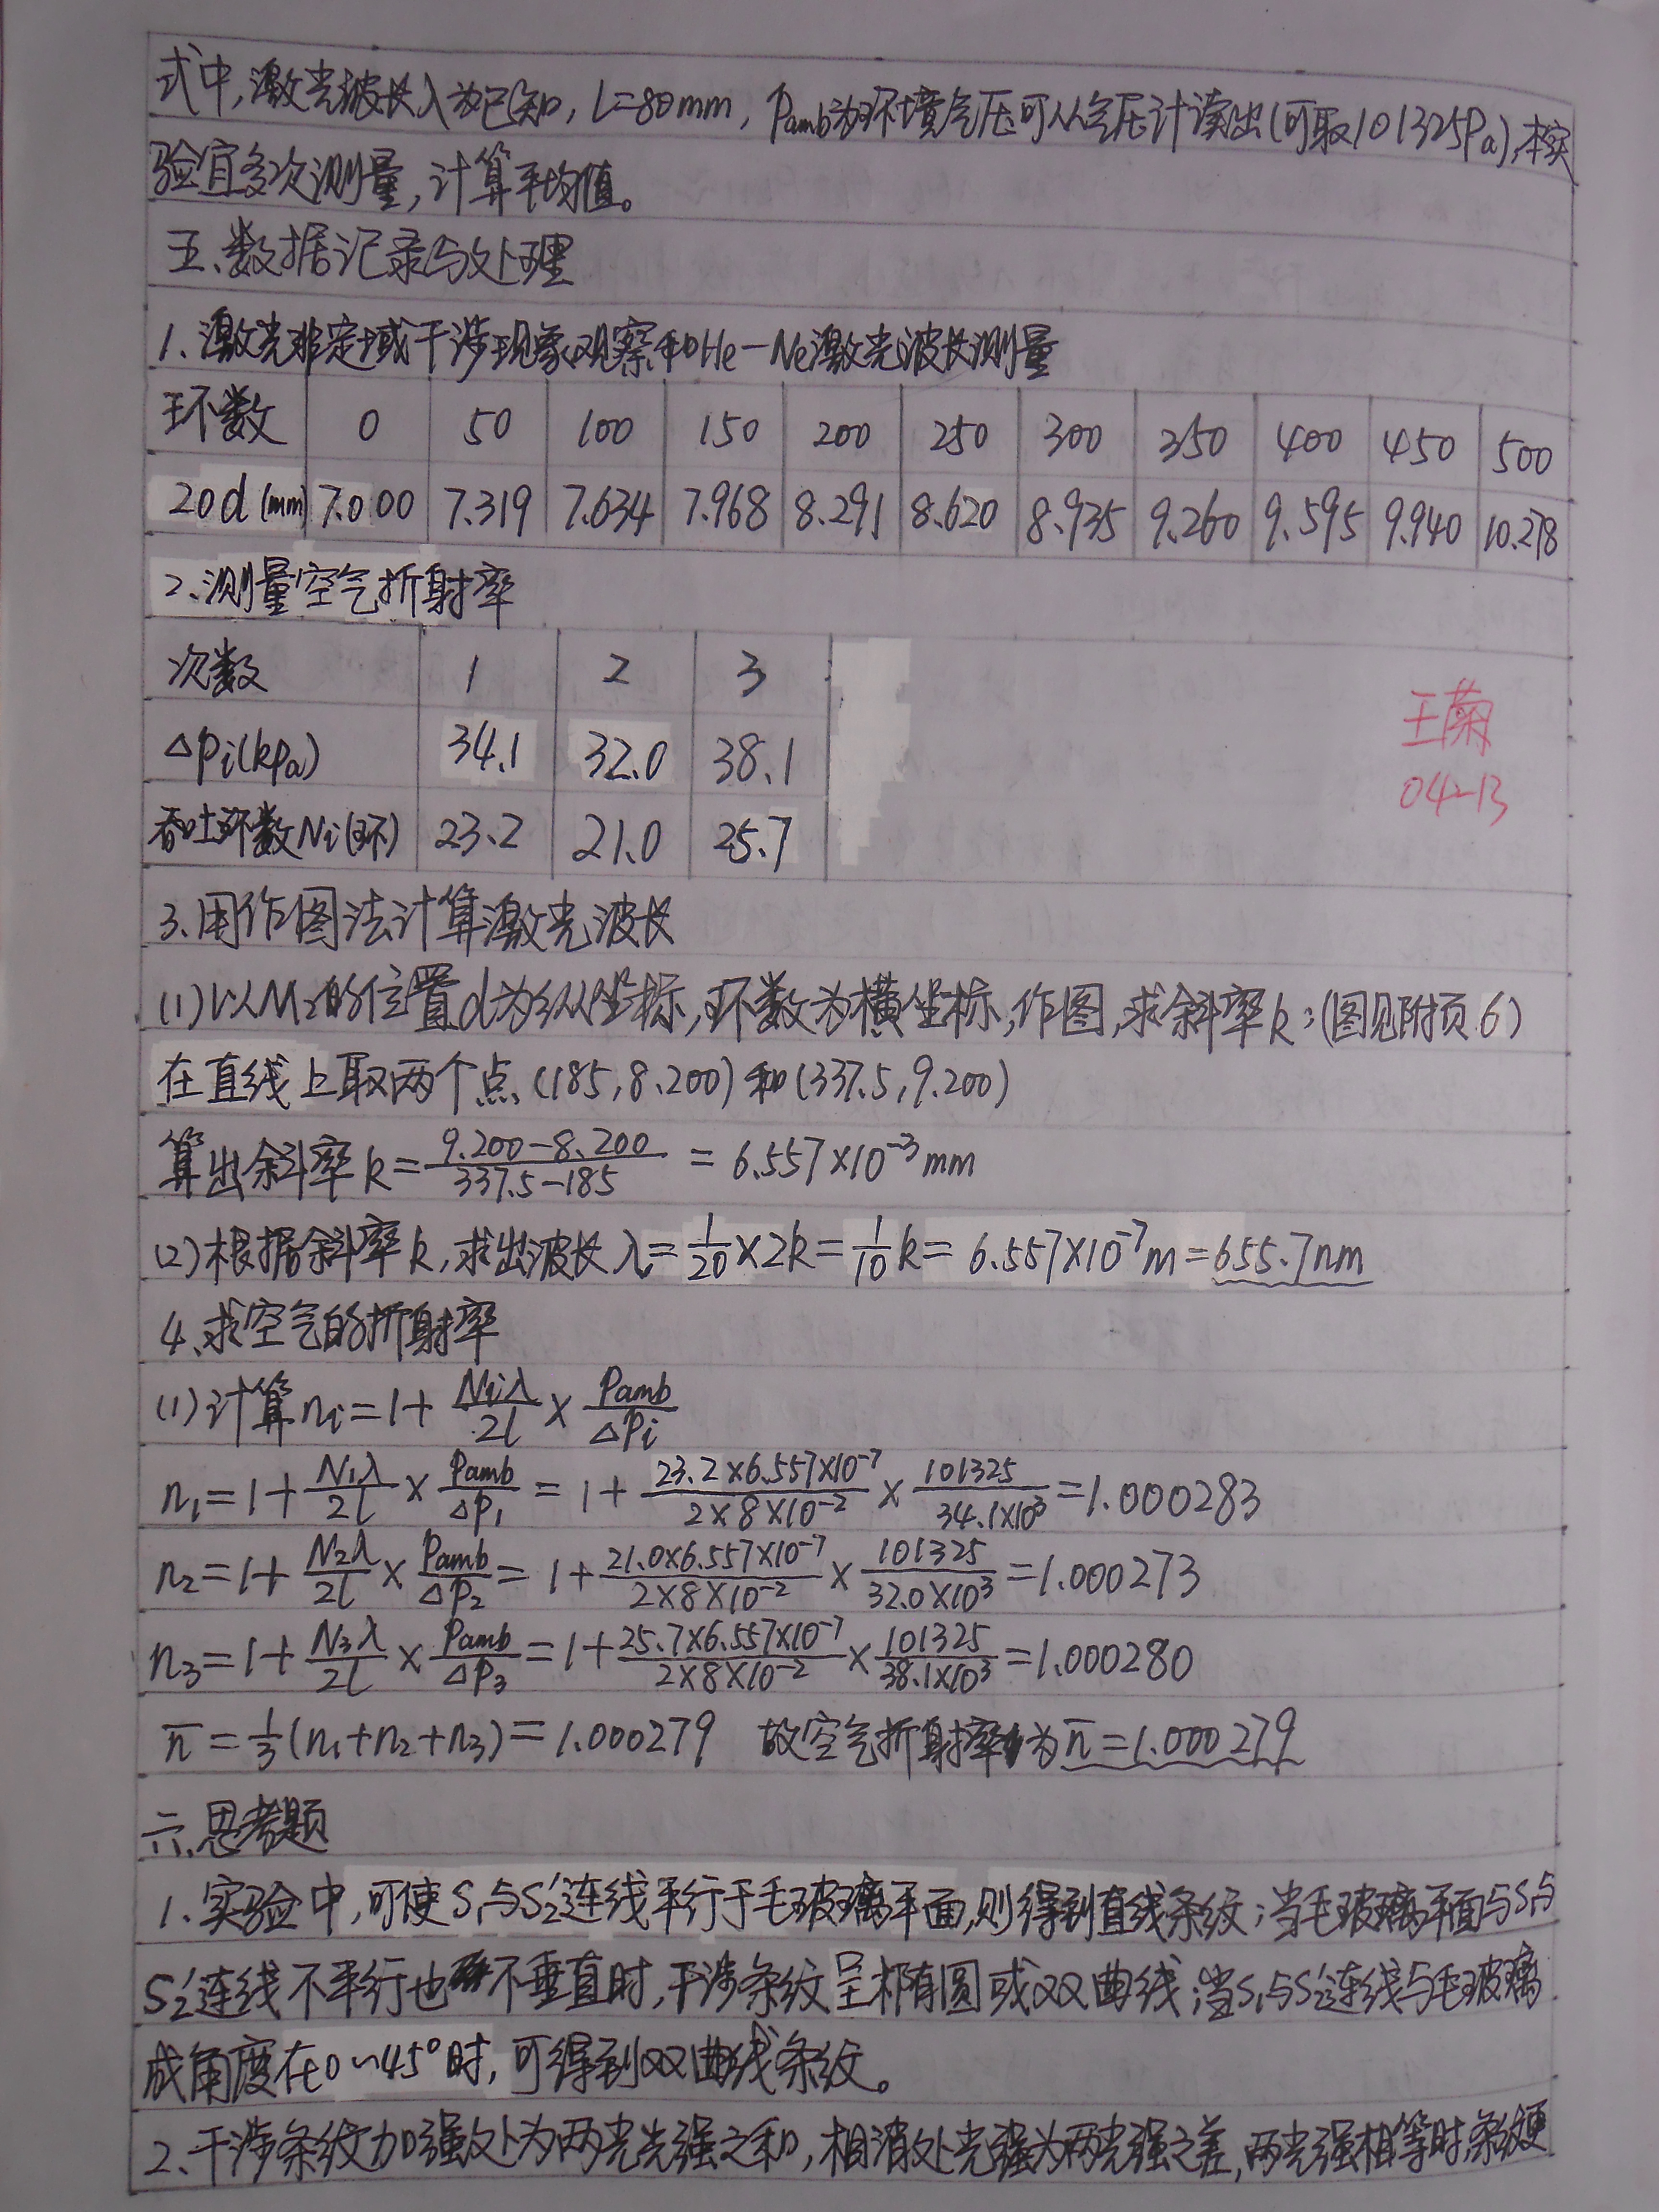 式中,激光波长λ为已知, L=80mm, Pamb为环境气压可从气压计读出(可取101325Pa),本实
验宜多次测量,计算平均值。
五、数据记录与处理
1、激光非定域干涉现象观察和He-Ne激光波长测量
环数 0 50 100 150 200 250 300 350 400 450 500
20d(mm) 7.000 7.319 7.634 7.968 8.291 8.620 8.935 9.260 9.595 9.940 10.278
2、测量空气折射率
次数 1 2 3
ΔPi(kPa) 34.1 32.0 38.1
王菊
04-13
吞吐环数Ni(环) 23.2 21.0 25.7
3、用作图法计算激光波长
(1)以M2的位置d为纵坐标,环数为横坐标,作图,求斜率k:(图见附页6)
在直线上取两个点(185,8.200)和(337.5,9.200)
算出斜率k=(9.200-8.200)/(337.5-185)=6.557×10⁻³mm
(2)根据斜率k,求出波长λ=1/20×2k=1/10k=6.557×10⁻⁷m=655.7nm
4、求空气的折射率
(1)计算ni=1+Niλ/2l×Pamb/ΔPi
n1=1+N1λ/2l×Pamb/ΔP1=1+(23.2×6.557×10⁻⁷)/(2×8×10⁻²)×101325/(34.1×10³)=1.000283
n2=1+N2λ/2l×Pamb/ΔP2=1+(21.0×6.557×10⁻⁷)/(2×8×10⁻²)×101325/(32.0×10³)=1.000273
n3=1+N3λ/2l×Pamb/ΔP3=1+(25.7×6.557×10⁻⁷)/(2×8×10⁻²)×101325/(38.1×10³)=1.000280
n̄=1/3(n1+n2+n3)=1.000279 故空气折射率为n̄=1.000279
六、思考题
1、实验中,可使S1与S2'连线平行于毛玻璃平面,则得到直线条纹;当毛玻璃平面与S1与
S2'连线不平行也不垂直时,干涉条纹呈椭圆或双曲线;当S1与S2'连线与毛玻璃
成角度在0~45°时,可得到双曲线条纹。
2、干涉条纹加强处为两光光强之和,相消处光强为两光强之差,两光强相等时,条纹更